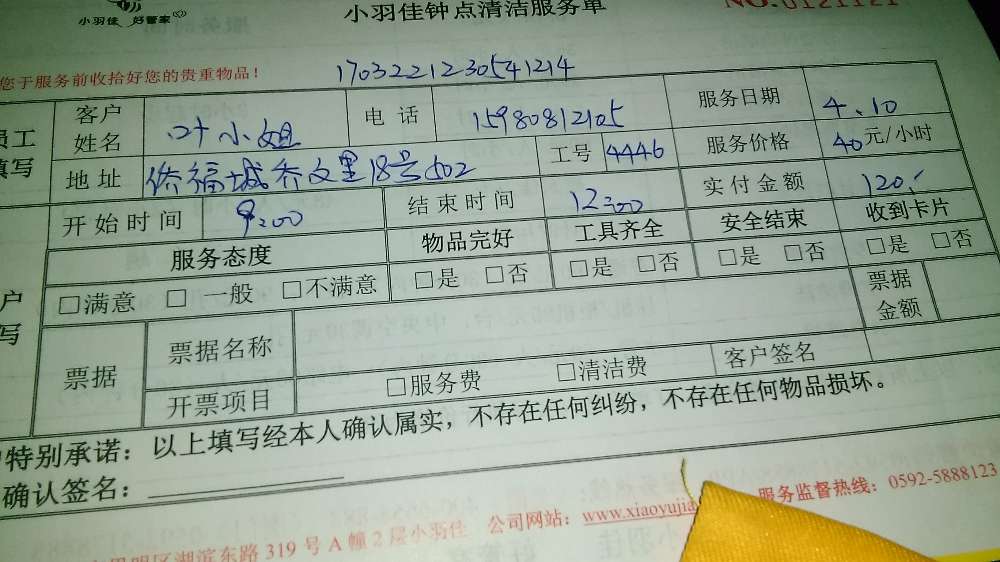 小羽佳 好管家
小羽佳钟点清洁服务单
NO.0121121
您于服务前收拾好您的贵重物品！
1703221230541214
员工
填写
客户
姓名
叶小姐
电话
15980812105
服务日期
4.10
地址
侨福城乔文里18号502
工号
4446
服务价格
40元/小时
开始时间
9:00
结束时间
12:00
实付金额
120.-
服务态度
物品完好
工具齐全
安全结束
收到卡片
□满意 □一般 □不满意
□是 □否
□是 □否
□是 □否
□是 □否
户
写
票据
票据名称
票据
金额
开票项目
□服务费 □清洁费
客户签名
特别承诺：以上填写经本人确认属实，不存在任何纠纷，不存在任何物品损坏。
确认签名：
明区湖滨东路319号A幢2层小羽佳 公司网站：www.xiaoyujia
服务监督热线：0592-5888123